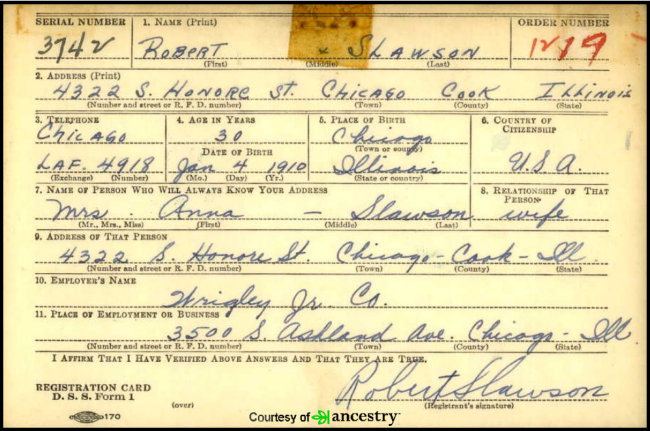 SERIAL NUMBER 1. NAME (Print) ORDER NUMBER
3742 ROBERT - SLAWSON 1279
(First) (Middle) (Last)
2. ADDRESS (Print)
4322 S. HONORE ST. CHICAGO COOK ILLINOIS
(Number and street or R. F. D. number) (Town) (County) (State)
3. TELEPHONE 4. AGE IN YEARS 5. PLACE OF BIRTH 6. COUNTRY OF CITIZENSHIP
CHICAGO 30 Chicago
DATE OF BIRTH (Town or county)
LAF. 4918 Jan 4 1910 Illinois U.S.A.
(Exchange) (Number) (Mo.) (Day) (Yr.) (State or country)
7. NAME OF PERSON WHO WILL ALWAYS KNOW YOUR ADDRESS 8. RELATIONSHIP OF THAT PERSON
Mrs. Anna - Slawson wife
(Mr., Mrs., Miss) (First) (Middle) (Last)
9. ADDRESS OF THAT PERSON
4322 S. Honore St. Chicago - Cook - Ill
(Number and street or R. F. D. number) (Town) (County) (State)
10. EMPLOYER'S NAME
Wrigley Jr. Co.
11. PLACE OF EMPLOYMENT OR BUSINESS
3500 S Ashland Ave. Chicago - Ill
(Number and street or R. F. D. number) (Town) (County) (State)
I AFFIRM THAT I HAVE VERIFIED ABOVE ANSWERS AND THAT THEY ARE TRUE.
Robert Slawson
REGISTRATION CARD
D. S. S. Form 1 (over) (Registrant's signature)
170 Courtesy of ancestry